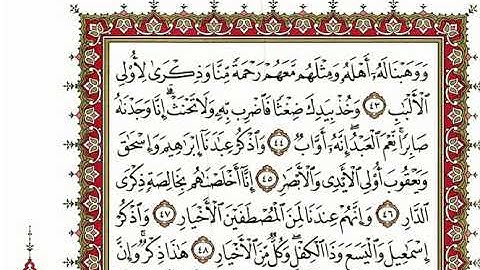 وَوَهَبْنَا لَهُۥٓ أَهْلَهُۥ وَمِثْلَهُم مَّعَهُمْ رَحْمَةً مِّنَّا وَذِكْرَىٰ لِأُو۟لِى
ٱلْأَلْبَٰبِ ٤٣ وَخُذْ بِيَدِكَ ضِغْثًا فَٱضْرِب بِّهِۦ وَلَا تَحْنَثْ ۗ إِنَّا وَجَدْنَٰهُ
صَابِرًا ۚ نِّعْمَ ٱلْعَبْدُ ۖ إِنَّهُۥٓ أَوَّابٌ ٤٤ وَٱذْكُرْ عِبَٰدَنَآ إِبْرَٰهِيمَ وَإِسْحَٰقَ
وَيَعْقُوبَ أُو۟لِى ٱلْأَيْدِى وَٱلْأَبْصَٰرِ ٤٥ إِنَّآ أَخْلَصْنَٰهُم بِخَالِصَةٍ ذِكْرَى
ٱلدَّارِ ٤٦ وَإِنَّهُمْ عِندَنَا لَمِنَ ٱلْمُصْطَفَيْنَ ٱلْأَخْيَارِ ٤٧ وَٱذْكُرْ
إِسْمَٰعِيلَ وَٱلْيَسَعَ وَذَا ٱلْكِفْلِ ۖ وَكُلٌّ مِّنَ ٱلْأَخْيَارِ ٤٨ هَٰذَا ذِكْرٌ ۚ وَإِنَّ